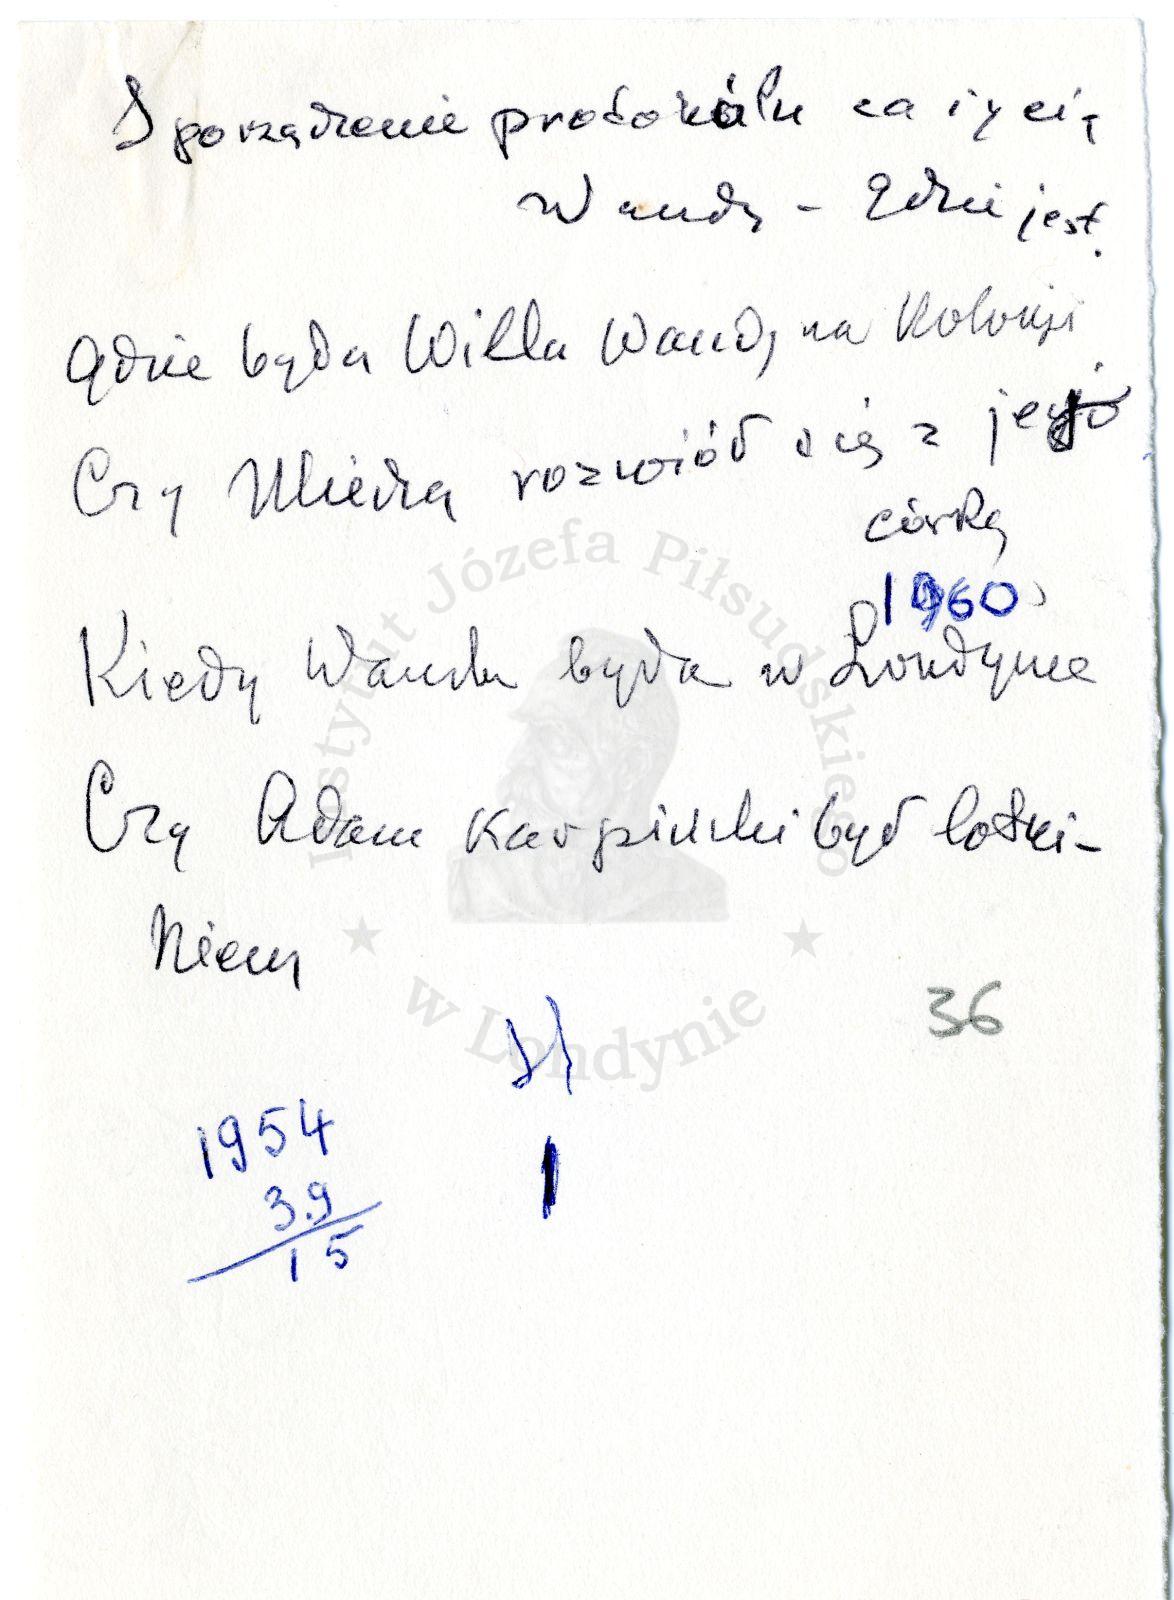 Sporządzenie protokółu za życia
Wandy - gdzie jest.
Gdzie była Willa Wandy na Kolonji
Czy Miedza rozwiódł się z jej
córką
1960
Kiedy Wanda była w Londynie
Czy Adam Karpiński był lotni-
kiem
36
1954
3.9
15
Instytut Józefa Piłsudskiego
w Londynie